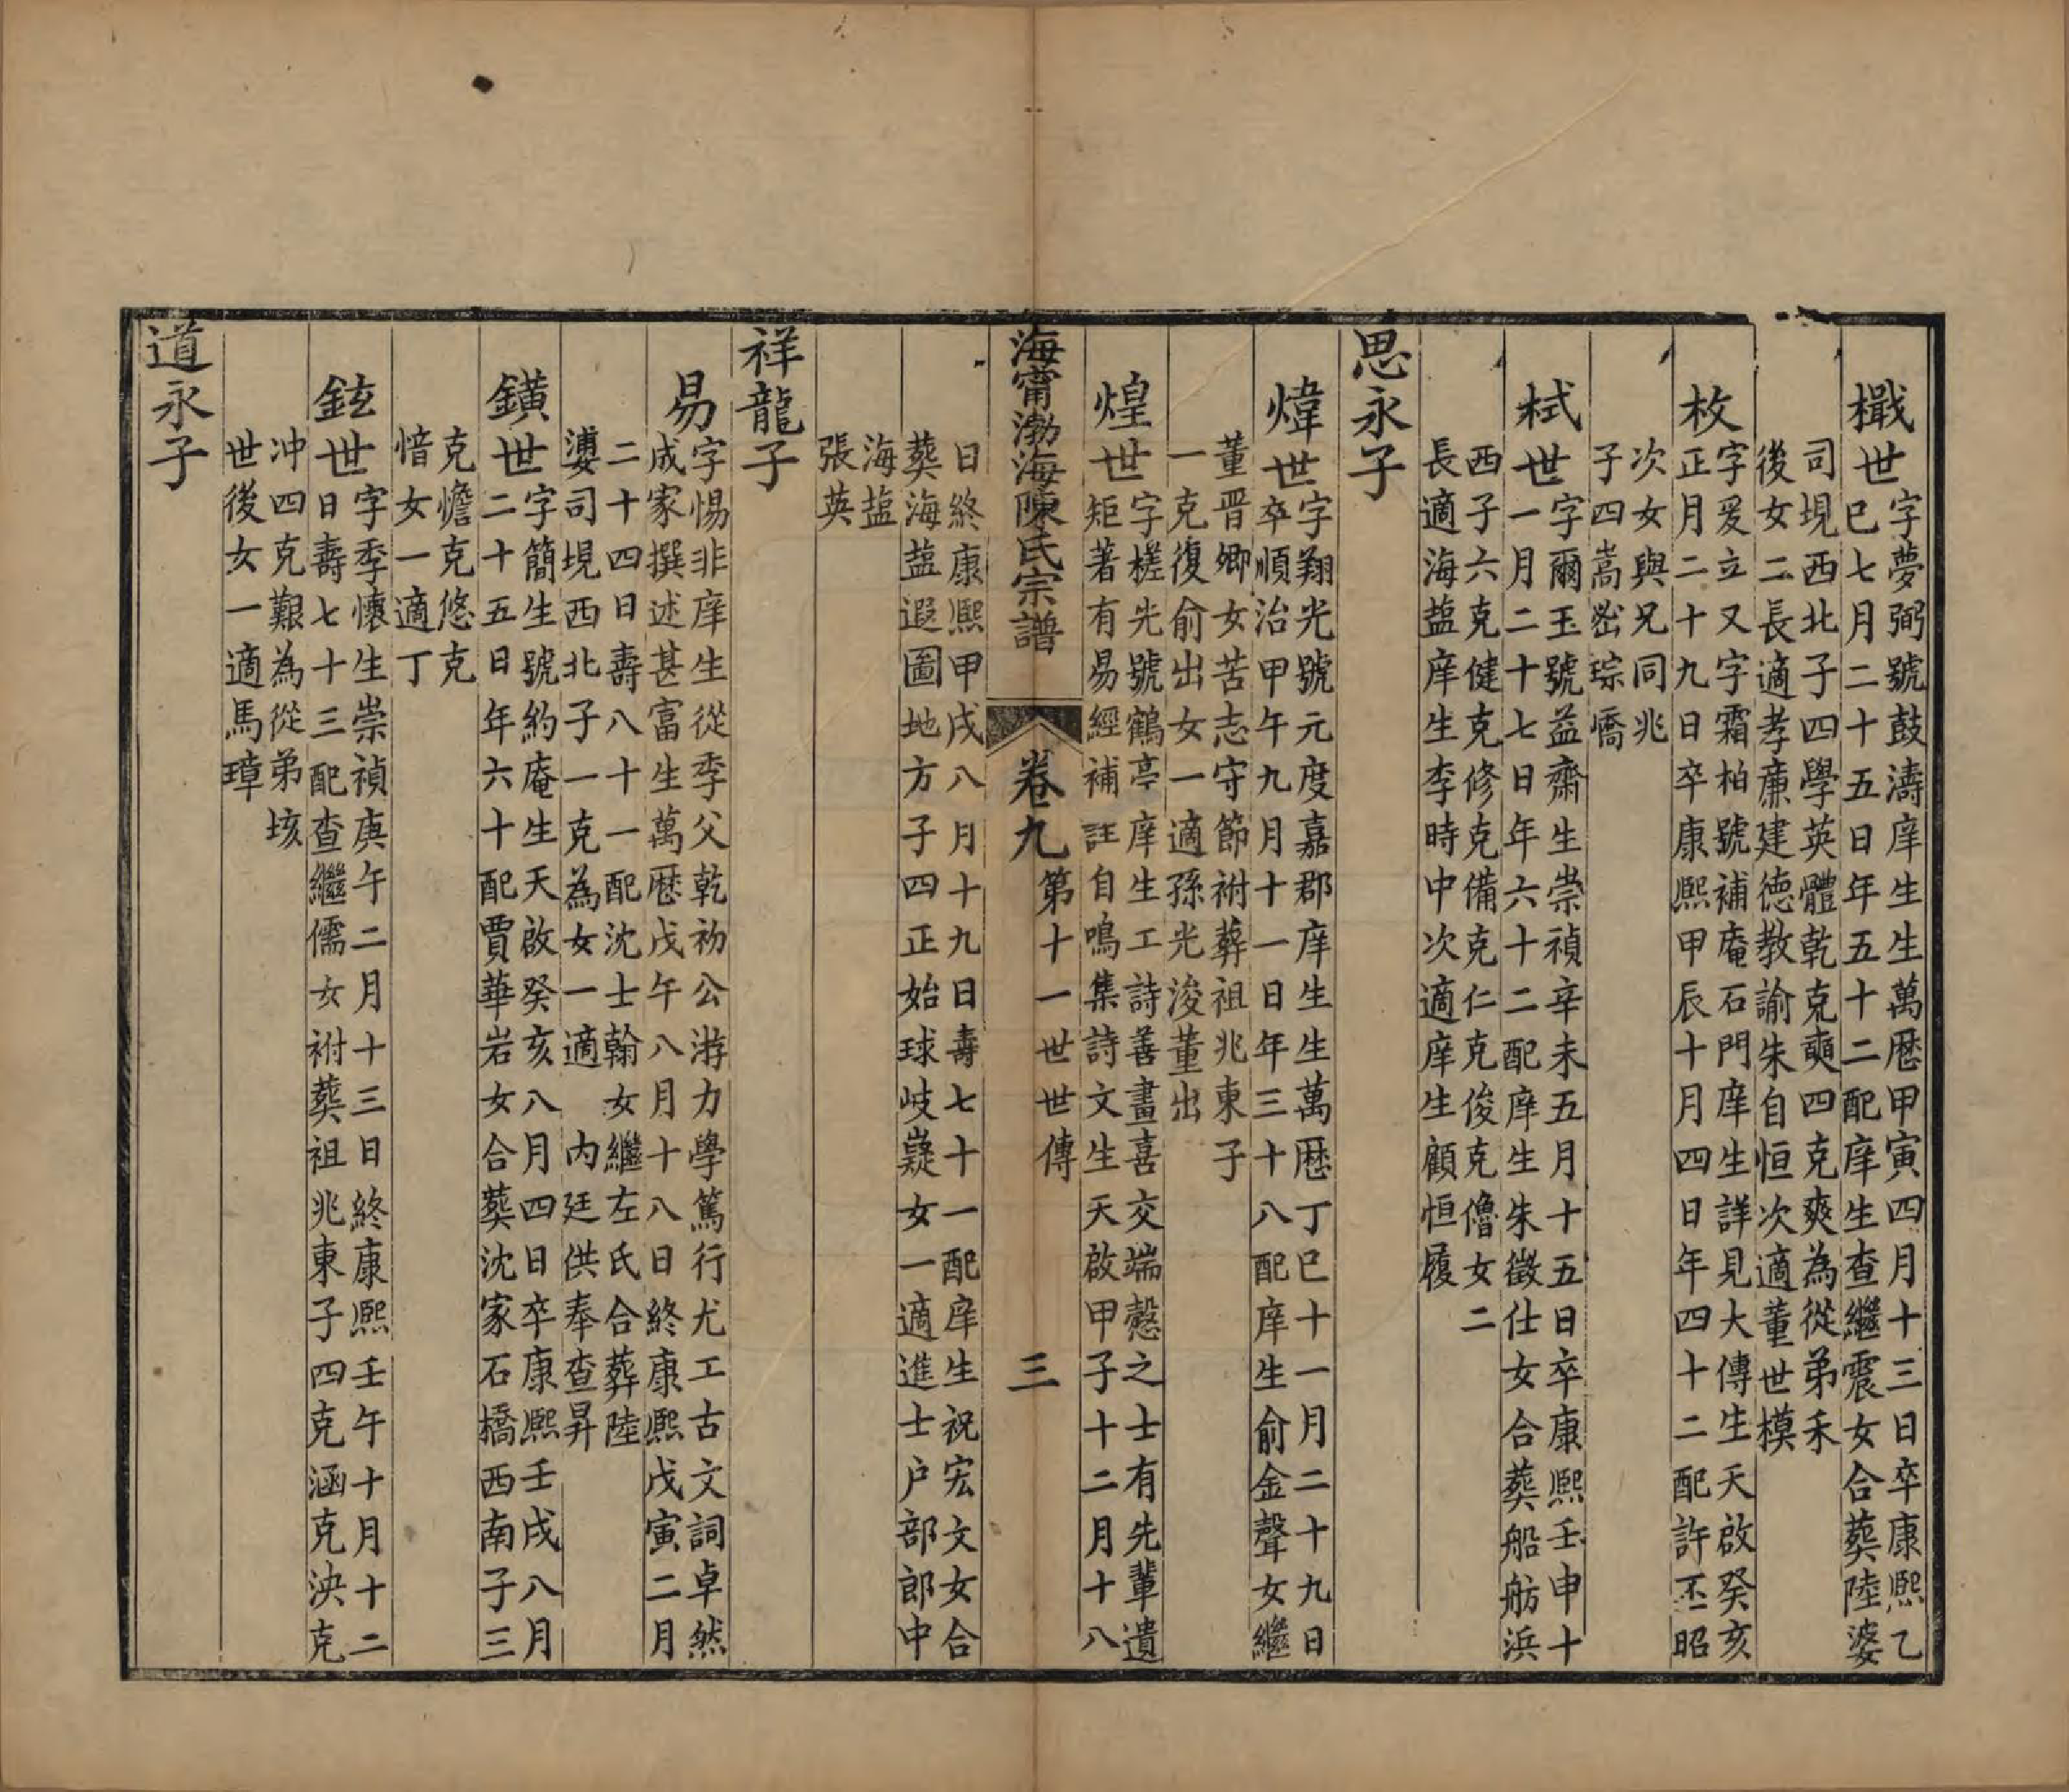 樴世
字夢弼號鼓濤庠生生萬曆甲寅四月十三日卒康熙乙
巳七月二十五日年五十二配庠生查繼震女合葬陸婆
司垷西北子四學英體乾克奭四克爽為從弟禾
後女二長適孝亷建德教諭朱自恒次適董世模
枚
字爰立又字霜柏號補庵石門庠生詳見大傳生天啟癸亥
正月二十九日卒康熙甲辰十月四日年四十二配許丕昭
次女與兄同兆
子四嵩嵍琮喬
栻世
字爾玉號益齋生崇禎辛未五月十五日卒康熙壬申十
一月二十七日年六十二配庠生朱徵仕女合葬船舫浜
西子六克健克修克備克仁克俊克僑女二
長適海盐庠生李時中次適庠生顧恒履
思永子
煒世
字翔光號元度嘉郡庠生生萬曆丁巳十一月二十九日
卒順治甲午九月十一日年三十八配庠生俞金聲女繼
董晋卿女苦志守節祔葬祖兆東子
一克復俞出女一適孫光浚董出
煌世
字槎先號鶴亭庠生工詩善畫喜交端慤之士有先輩遺
矩著有易經補註自鳴集詩文生天啟甲子十二月十八
海甯渤海陳氏宗譜
卷九
第十一世世傳
三
日終康熙甲戌八月十九日壽七十一配庠生祝宏文女合
葬海盐遐圖地方子四正始球岐嶷女一適進士户部郎中
海盐
張英
祥龍子
易
字惕非庠生從季父乾初公游力學篤行尤工古文詞卓然
成家撰述甚富生萬曆戊午八月十八日終康熙戊寅二月
二十四日壽八十一配沈士翰女繼左氏合葬陸
婆司垷西北子一克為女一適 内廷供奉查昇
鐄世
字簡生號約庵生天啟癸亥八月四日卒康熙壬戌八月
二十五日年六十配賈華岩女合葬沈家石橋西南子三
克憺克悠克
愔女一適丁
鉉世
字季懷生崇禎庚午二月十三日終康熙壬午十月十二
日壽七十三配查繼儒女祔葬祖兆東子四克涵克泱克
冲四克艱為從弟垓
世後女一適馬璋
道永子